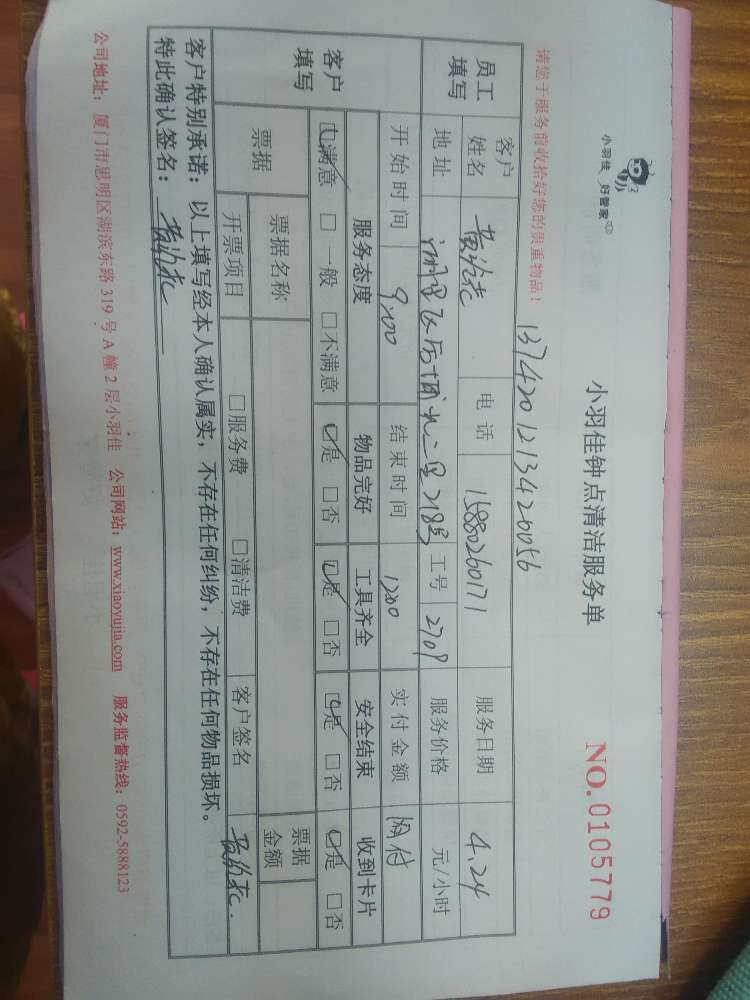 小羽佳 好管家
小羽佳钟点清洁服务单
NO.0105779
请您于服务前收拾好您的贵重物品！
13742012134260056
员工填写
客户姓名 电话 15880260171 服务日期 4.24
地址 218号 工号 2709 服务价格 元/小时
客户填写
开始时间 9:00 结束时间 12:00 实付金额 网付
服务态度 物品完好 工具齐全 安全结束 收到卡片
☑满意 □一般 □不满意 ☑是 □否 ☑是 □否 ☑是 □否 ☑是 □否
票据 票据名称 票据金额
开票项目 □服务费 □清洁费 客户签名
客户特别承诺：以上填写经本人确认属实，不存在任何纠纷，不存在任何物品损坏。
特此确认签名：
公司地址：厦门市思明区湖滨东路 319 号 A 幢 2 层小羽佳 公司网站：www.xiaoyujia.com 服务监督热线：0592-5888123